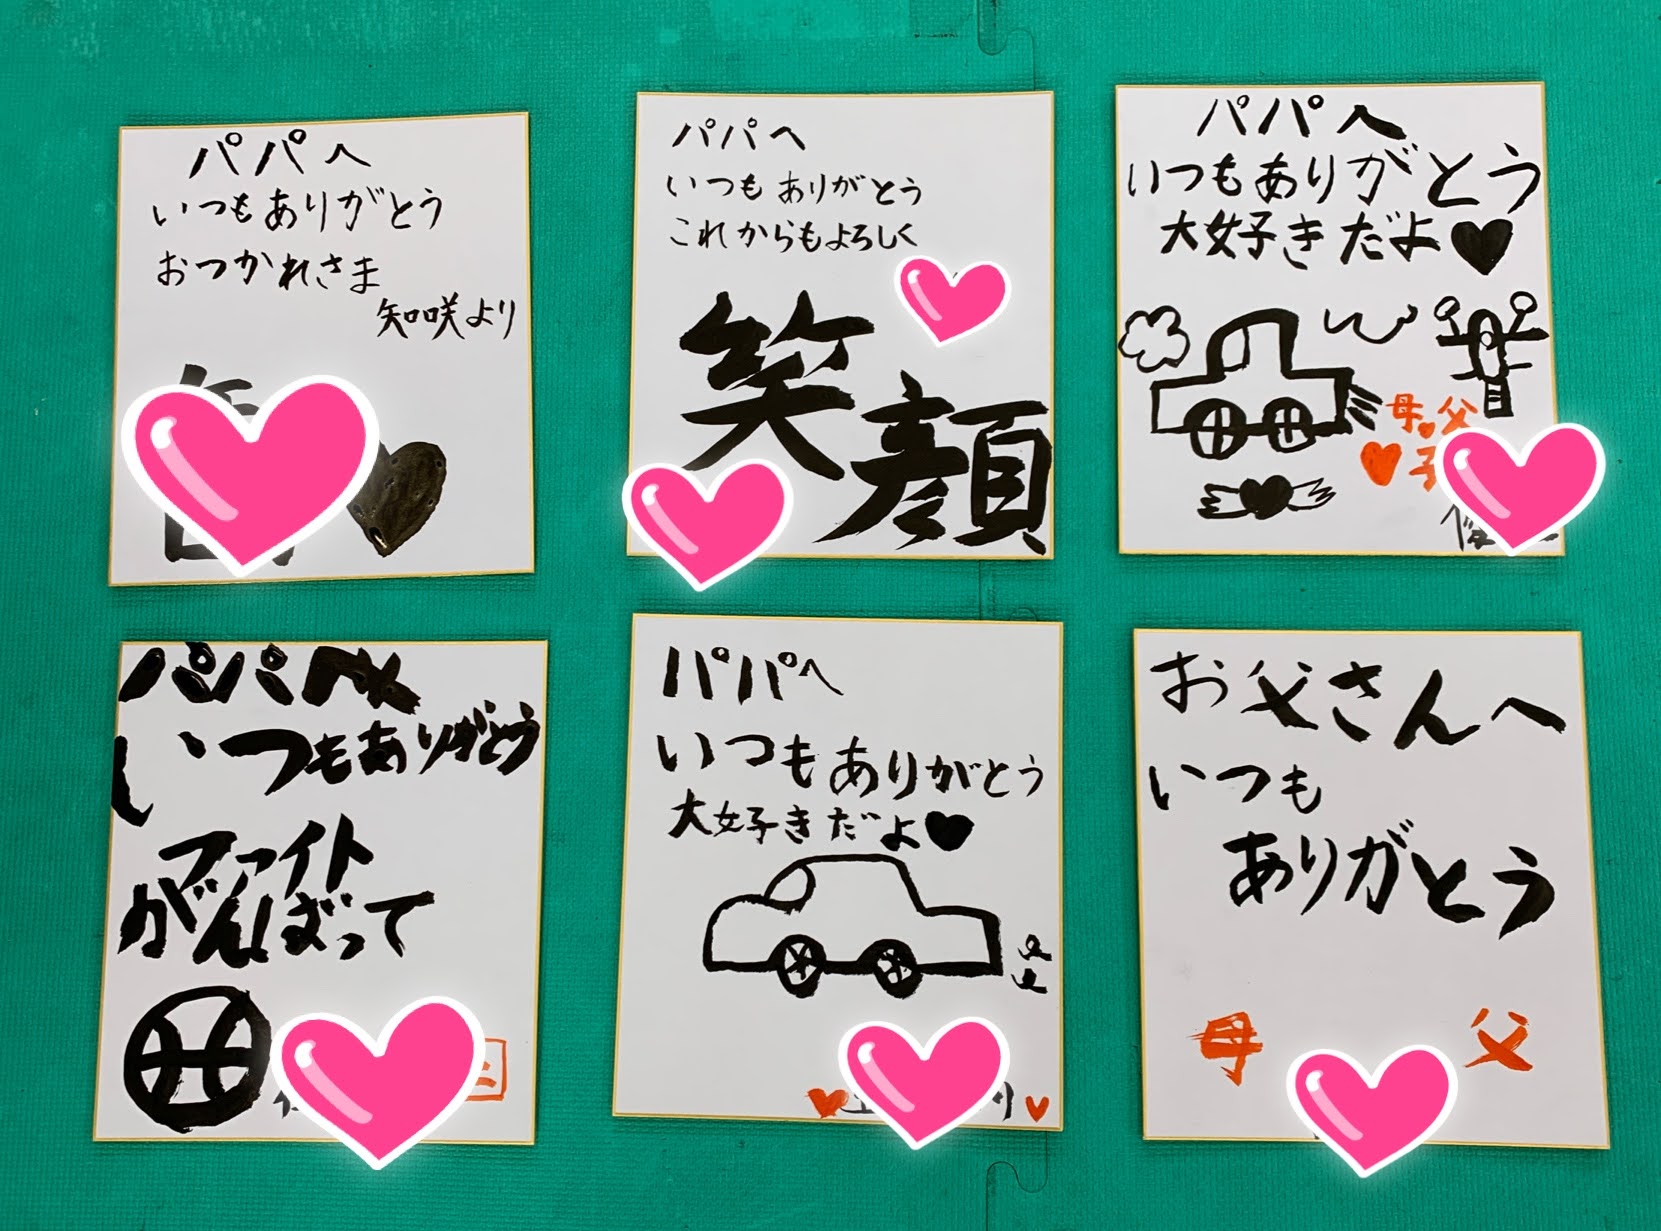 パパへ
いつもありがとう
おつかれさま
知咲より
パパへ
いつもありがとう
これからもよろしく
笑顔
パパへ
いつもありがとう
大好きだよ
母 父
子
パパへ
いつもありがとう
ファイト
がんばって
パパへ
いつもありがとう
大好きだよ
お父さんへ
いつも
ありがとう
母 父